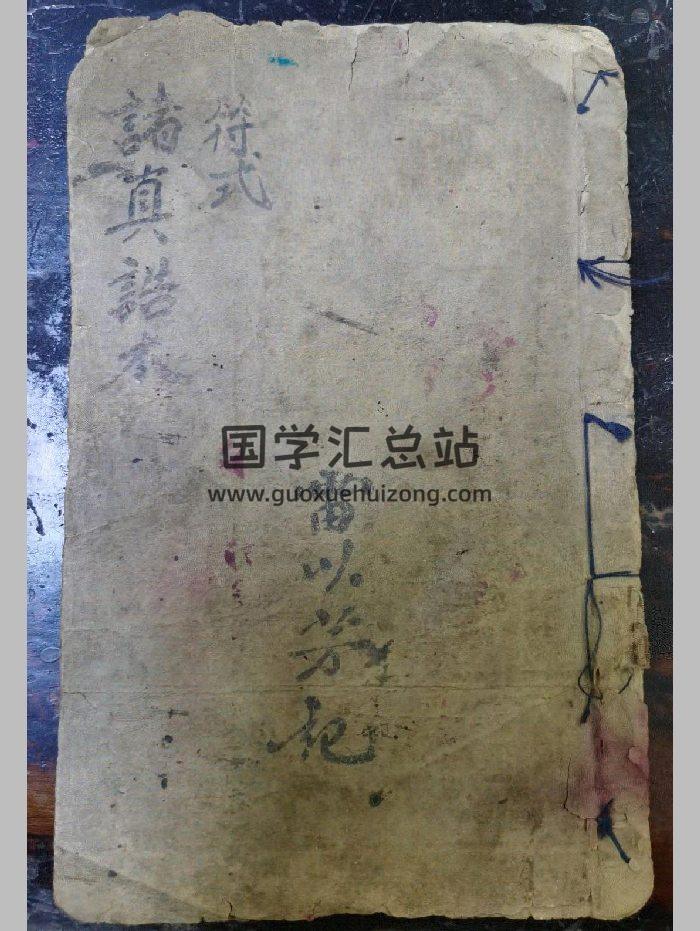 符式
諸真誥本
雷以芳記
国学汇总站
www.guoxuehuizong.com